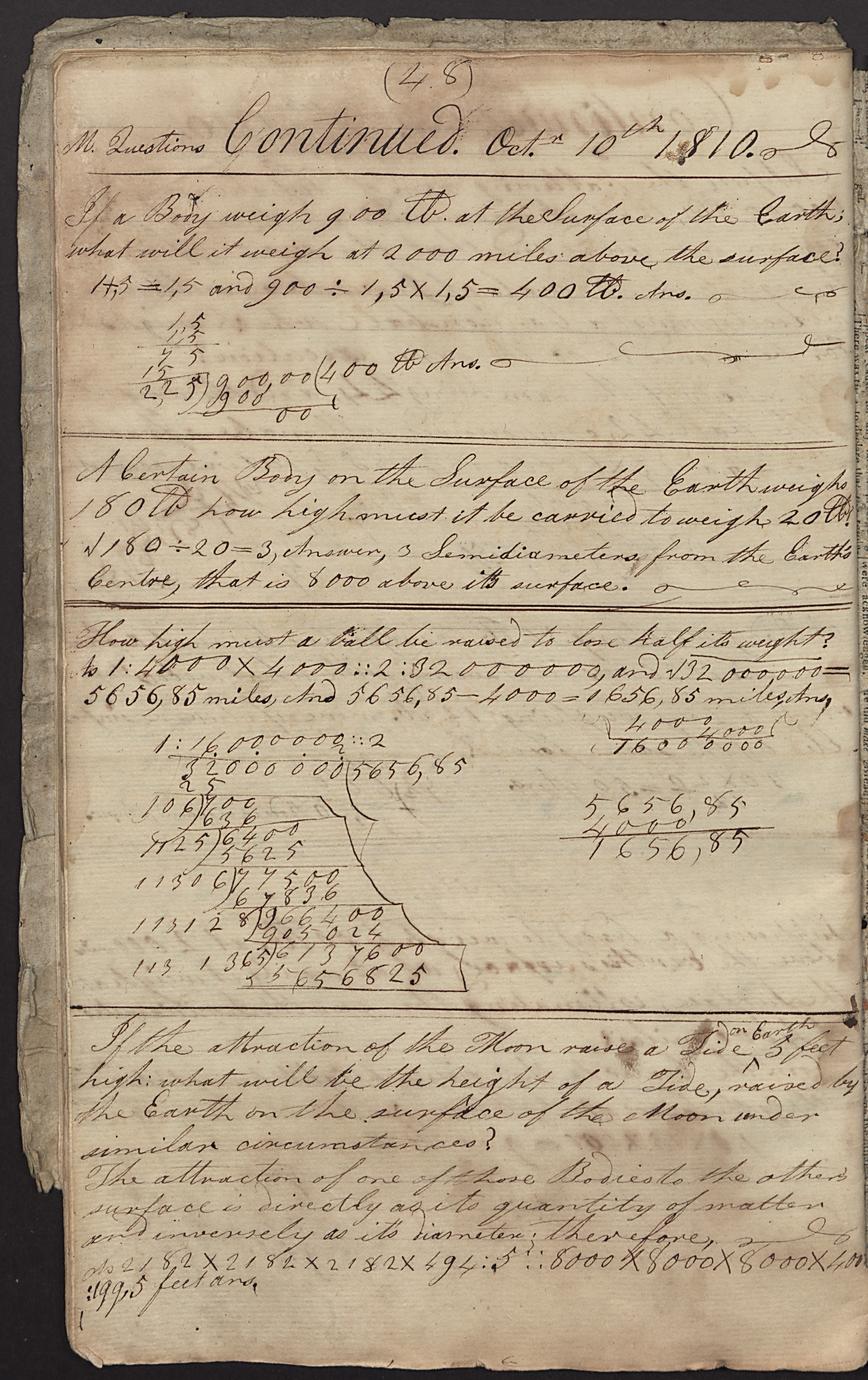 (48)
M. Questions Continued. Oct.r 10th 1810.
If a Body weigh 900 lb. at the Surface of the Earth;
what will it weigh at 2000 miles above the surface?
1+,5=1,5 and 900 ÷ 1,5X1,5= 400 lb. Ans.
1,5
1,5
75
15
2,25)900,00(400 lb Ans.
900
00
A Certain Body on the Surface of the Earth weighs
180 lb how high must it be carried to weigh 20 lb?
√180÷20=3, Answer, 3 Semidiameters from the Earth's
Centre, that is 8000 above its surface.
How high must a ball be raised to lose half its weight?
As 1:4000X4000::2:32000000, and √32000,000=
5656,85 miles, And 5656,85-4000=1656,85 miles, Ans,
4000
4000
16000000
1:16000000::2
2
32000000(5656,85
25
106)700
636
1125)6400
5625
11306)77500
67836
113128)966400
905024
1131365)6137600
5656825
5656,85
4000
1656,85
If the attraction of the Moon raise a Tide on Earth 5 feet
high: what will be the height of a Tide, raised by
the Earth on the surface of the Moon under
similar circumstances?
The attraction of one of those Bodies to the other's
surface is directly as its quantity of matter
and inversely as its diameter; therefore,
As 2182X2182X2182X494:5::8000X8000X8000X400
:199,5 feet ans,